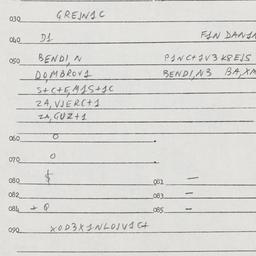 030 GREJN1C
040 D1 F1N DAN1A
050 BENDI,N P1NC+1V3 K8EJS
DO,MBROV1 BENDI,N3 BA,XA
S+C+E,M1S+1C
ZA,VJERC+1
ZA,GUZ+1
060 O
070 O
080 $ 081 —
082 083 —
084 + 0 085 —
090 XOD3X1NLOJV1C+